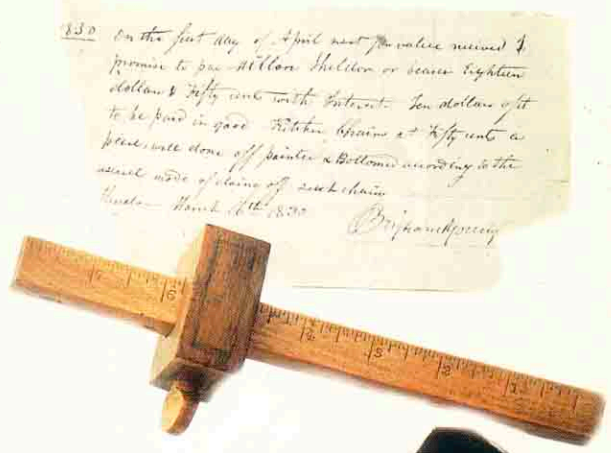 1830 On the first day of April next for value recieved I
promise to pay Milton Sheldon or bearer Eighteen
dollars & Fifty cents with Interest. Ten dollars of it
to be paid in good Kitchen Chairs at Fifty cents a
piece, well done off painted & Bottomed according to the
usual mode of doing off such chairs
Mendon March 16th 1830
Brigham Young